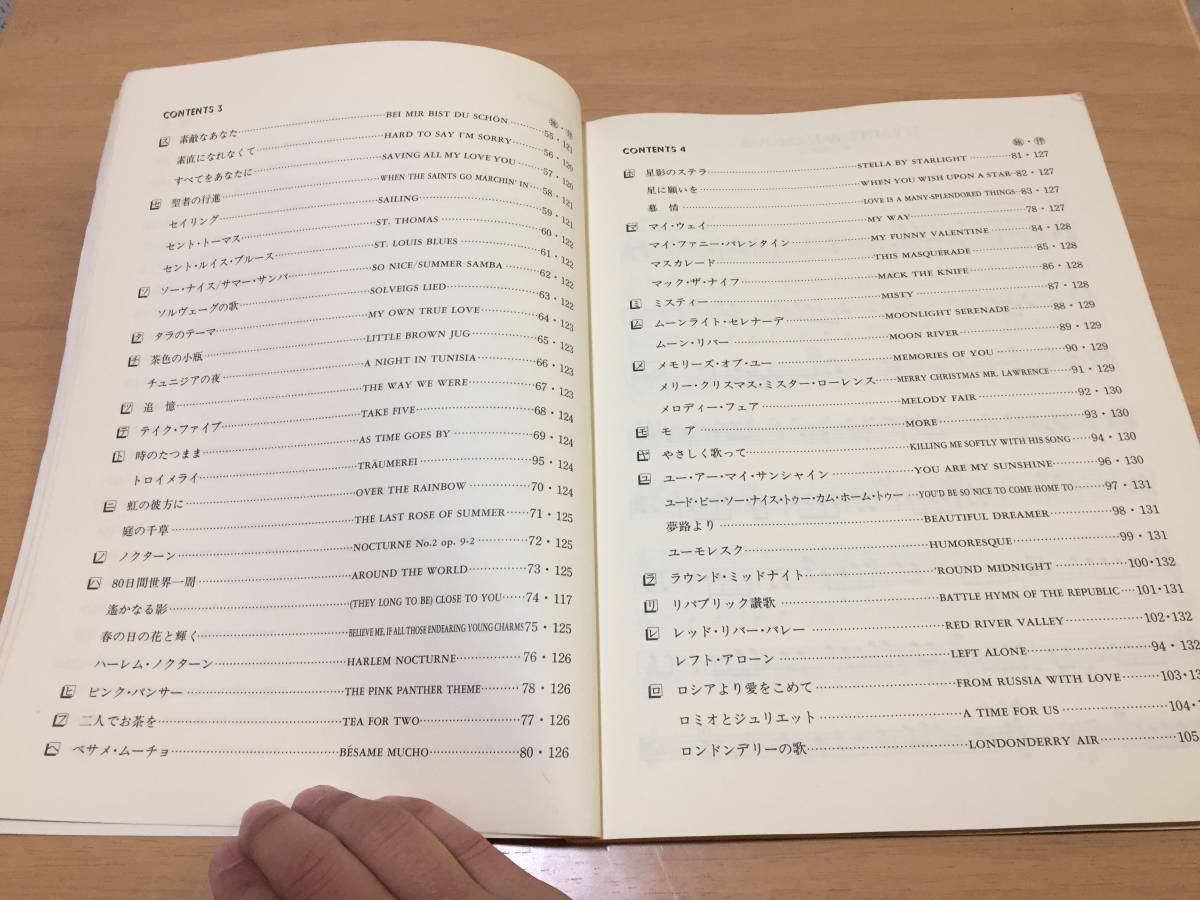 CONTENTS 3
ス 素敵なあなた BEI MIR BIST DU SCHÖN 55・121
素直になれなくて HARD TO SAY I'M SORRY 56・120
すべてをあなたに SAVING ALL MY LOVE YOU 57・120
セ 聖者の行進 WHEN THE SAINTS GO MARCHIN' IN 58・121
セイリング SAILING 59・121
セント・トーマス ST. THOMAS 60・122
セント・ルイス・ブルース ST. LOUIS BLUES 61・122
ソ ソー・ナイス/サマー・サンバ SO NICE/SUMMER SAMBA 62・122
ソルヴェーグの歌 SOLVEIGS LIED 63・122
タ タラのテーマ MY OWN TRUE LOVE 64・123
チ 茶色の小瓶 LITTLE BROWN JUG 65・123
チュニジアの夜 A NIGHT IN TUNISIA 66・123
ツ 追憶 THE WAY WE WERE 67・123
テ テイク・ファイブ TAKE FIVE 68・124
ト 時のたつまま AS TIME GOES BY 69・124
トロイメライ TRÄUMEREI 95・124
ニ 虹の彼方に OVER THE RAINBOW 70・124
庭の千草 THE LAST ROSE OF SUMMER 71・125
ノ ノクターン NOCTURNE No.2 op. 9-2 72・125
ハ 80日間世界一周 AROUND THE WORLD 73・125
遙かなる影 (THEY LONG TO BE) CLOSE TO YOU 74・117
春の日の花と輝く BELIEVE ME, IF ALL THOSE ENDEARING YOUNG CHARMS 75・125
ハーレム・ノクターン HARLEM NOCTURNE 76・126
ヒ ピンク・パンサー THE PINK PANTHER THEME 78・126
フ 二人でお茶を TEA FOR TWO 77・126
ヘ ベサメ・ムーチョ BÉSAME MUCHO 80・126
CONTENTS 4
ホ 星影のステラ STELLA BY STARLIGHT 81・127
星に願いを WHEN YOU WISH UPON A STAR 82・127
慕情 LOVE IS A MANY-SPLENDORED THINGS 83・127
マ マイ・ウェイ MY WAY 78・127
マイ・ファニー・バレンタイン MY FUNNY VALENTINE 84・128
マスカレード THIS MASQUERADE 85・128
マック・ザ・ナイフ MACK THE KNIFE 86・128
ミ ミスティー MISTY 87・128
ム ムーンライト・セレナーデ MOONLIGHT SERENADE 88・129
ムーン・リバー MOON RIVER 89・129
メ メモリーズ・オブ・ユー MEMORIES OF YOU 90・129
メリー・クリスマス・ミスター・ローレンス MERRY CHRISTMAS MR. LAWRENCE 91・129
メロディー・フェア MELODY FAIR 92・130
モ モア MORE 93・130
ヤ やさしく歌って KILLING ME SOFTLY WITH HIS SONG 94・130
ユ ユー・アー・マイ・サンシャイン YOU ARE MY SUNSHINE 96・130
ユード・ビー・ソー・ナイス・トゥー・カム・ホーム・トゥー YOU'D BE SO NICE TO COME HOME TO 97・131
夢路より BEAUTIFUL DREAMER 98・131
ユーモレスク HUMORESQUE 99・131
ラ ラウンド・ミッドナイト 'ROUND MIDNIGHT 100・132
リ リパブリック讃歌 BATTLE HYMN OF THE REPUBLIC 101・131
レ レッド・リバー・バレー RED RIVER VALLEY 102・132
レフト・アローン LEFT ALONE 94・132
ロ ロシアより愛をこめて FROM RUSSIA WITH LOVE 103・13
ロミオとジュリエット A TIME FOR US 104・
ロンドンデリーの歌 LONDONDERRY AIR 105